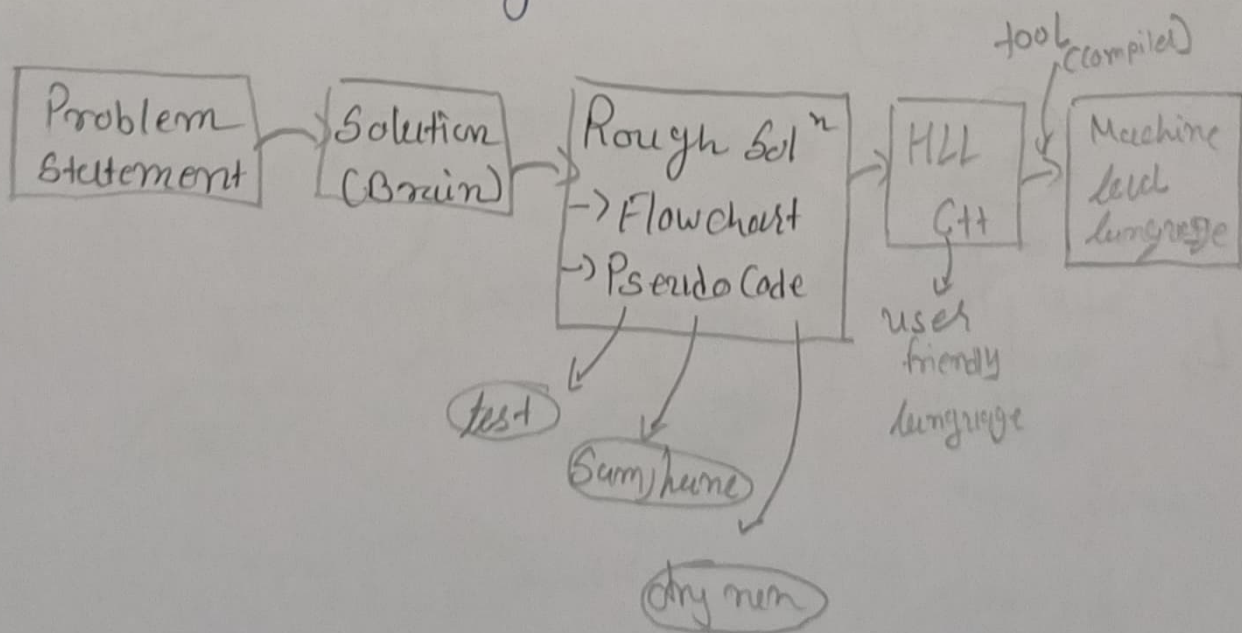 tool
(Compiler)
Problem
Statement
Solution
(Brain)
Rough Solⁿ
-> Flowchart
-> Pseudo Code
HLL
C++
Machine
level
language
user
friendly
language
test
Samjhane
dry run